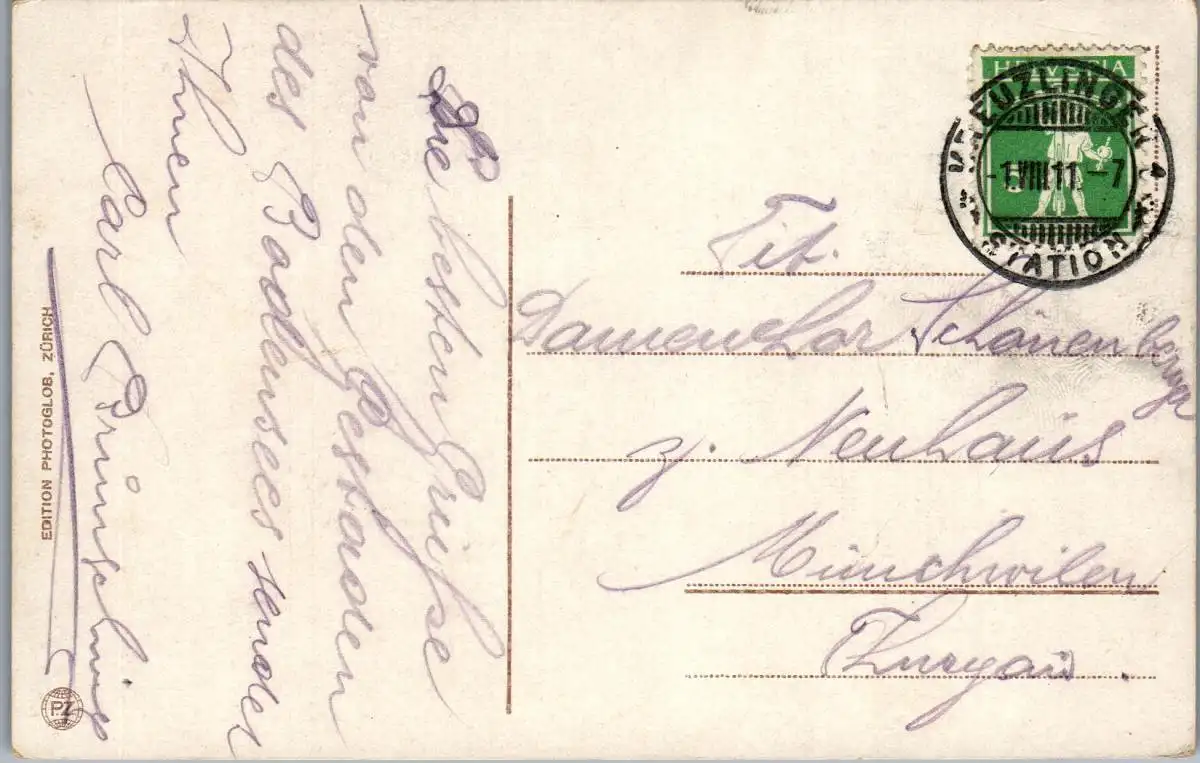 Die besten Grüße
von den Gestaden
des Bodensees sendet
Ihnen
Carl
EDITION PHOTOGLOB, ZÜRICH
P.Z
HELVETIA
5
KREUZLINGEN
-1.VIII.11.-7
STATION
Tit.
Damenchor Schauenberger
z. Neuhaus
Münchwilen
Thurgau.